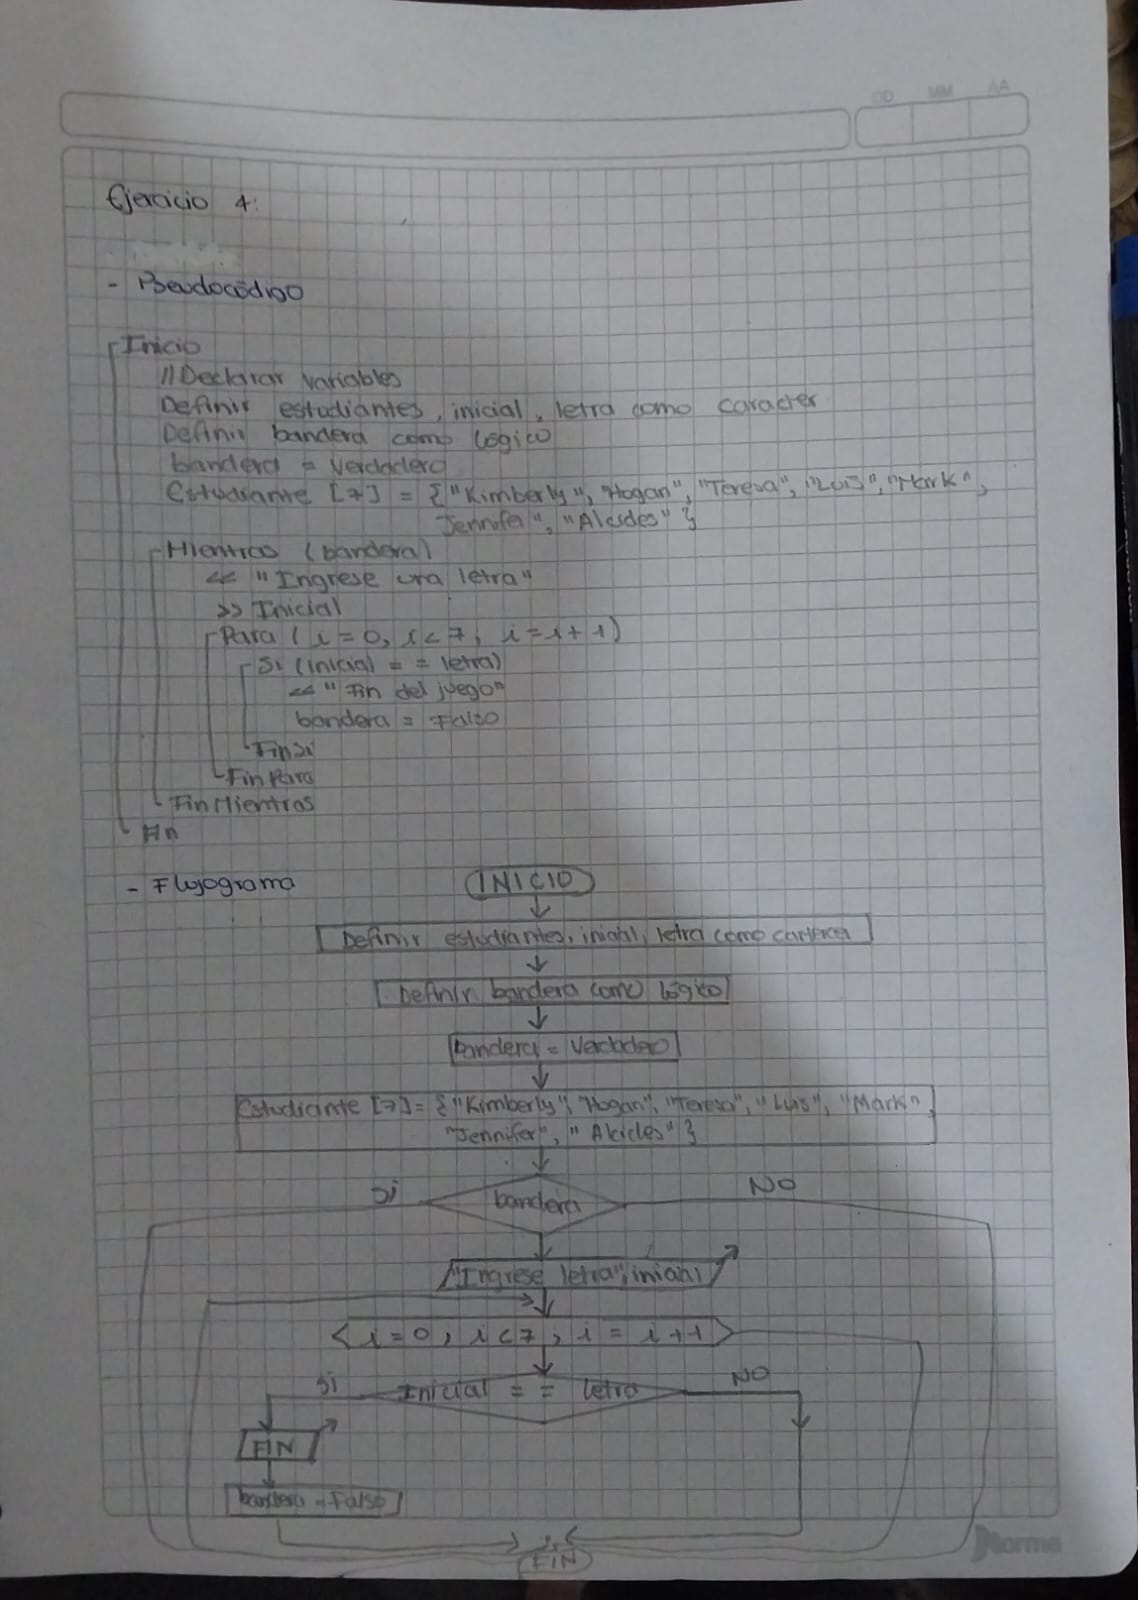 DD MM AA
Ejercicio 4:
- Pseudocódigo
Inicio
//Declarar variables
Definir estudiantes, inicial, letra como caracter
Definir bandera como lógico
bandera = Verdadero
Estudiante [7] = {"Kimberly", "Hogan", "Teresa", "Luis", "Mark",
Jennifer", "Alcides" }
Mientras (bandera)
<< "Ingrese una letra"
>> Inicial
Para ( i = 0, i < 7, i = i + 1)
Si (inicial = = letra)
<< "Fin del juego"
bandera = Falso
Fin Si
Fin Para
Fin Mientras
Fin
- Flujograma
INICIO
Definir estudiantes, inicial, letra como
Definir bandera como lógico
bandera = Verdadero
Estudiante [7] = {"Kimberly", "Hogan", "Teresa", "Luis", "Mark",
"Jennifer", "Alcides" }
Si bandera NO
"Ingrese letra", inicial
i = 0, i < 7 ; i = i + 1
Si Inicial = = letra NO
FIN
bandera = Falso
FIN
Norma